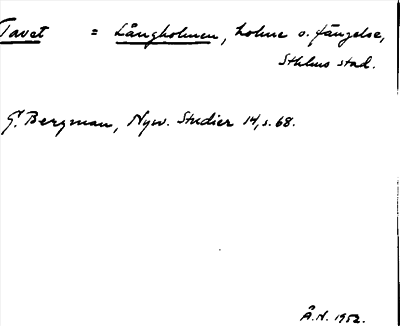 Tavat = Långholmen, holme o. fängelse,
Sthlms stad.
G. Bergman, Nysv. Studier 14, s. 68.
Å.N. 1952.